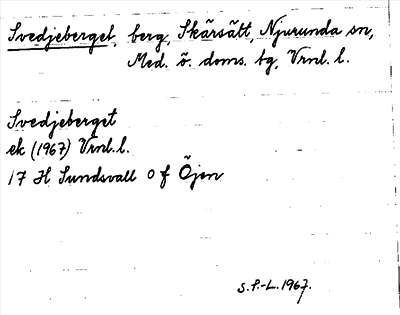 Svedjeberget, berg, Skärsätt, Njurunda sn,
Med. ö. doms. tg, Vrnl. l.
Svedjeberget
ek (1967) Vrnl. l.
17 H Sundsvall O f Öjen
S.F.-L. 1967.